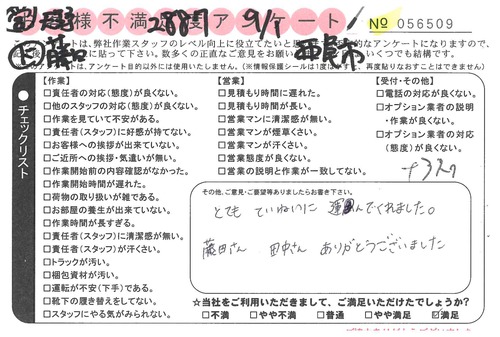 様不満 アンケート! 9/1 № 056509
は、弊社作業スタッフのレベル向上に役立てたいと
に貼って下さい。数多くの正直なご意見をお願い
の、アンケート目的以外には使用致しません。(※情報保護シールは1度はがすと、再度貼りなおすことはできません)
チェックリスト
【作業】
□責任者の対応(態度)が良くない。
□他のスタッフの対応(態度)が良くない。
□作業を見ていて不安がある。
□責任者(スタッフ)に好感が持てない。
□お客様への挨拶が出来ていない。
□ご近所への挨拶・気遣いが無い。
□作業開始前の内容確認がなかった。
□作業開始時間が遅れた。
□荷物の取り扱いが雑である。
□お部屋の養生が出来ていない。
□作業時間が長すぎる。
□責任者(スタッフ)に清潔感が無い。
□責任者(スタッフ)が汗くさい。
□トラックが汚い。
□梱包資材が汚い。
□運転が不安(下手)である。
□靴下の履き替えをしてない。
□スタッフにやる気がみられない。
【営業】
□見積もり時間に遅れた。
□見積もり時間が長い。
□営業マンに清潔感が無い。
□営業マンが煙草くさい。
□営業マンが汗くさい。
□営業態度が良くない。
□営業の説明と作業が一致してない。
【受付・その他】
□電話の対応が良くない。
□オプション業者の説明
・作業が良くない。
□オプション業者の対応
(態度)が良くない。
その他、ご意見・ご要望等ありましたらお書き下さい。
とても ていねいに 運んでくれました。
藤田さん 田中さん ありがとうございました
☆当社をご利用いただきまして、ご満足いただけたでしょうか?
□不満 □やや不満 □普通 □やや満足 ☑満足